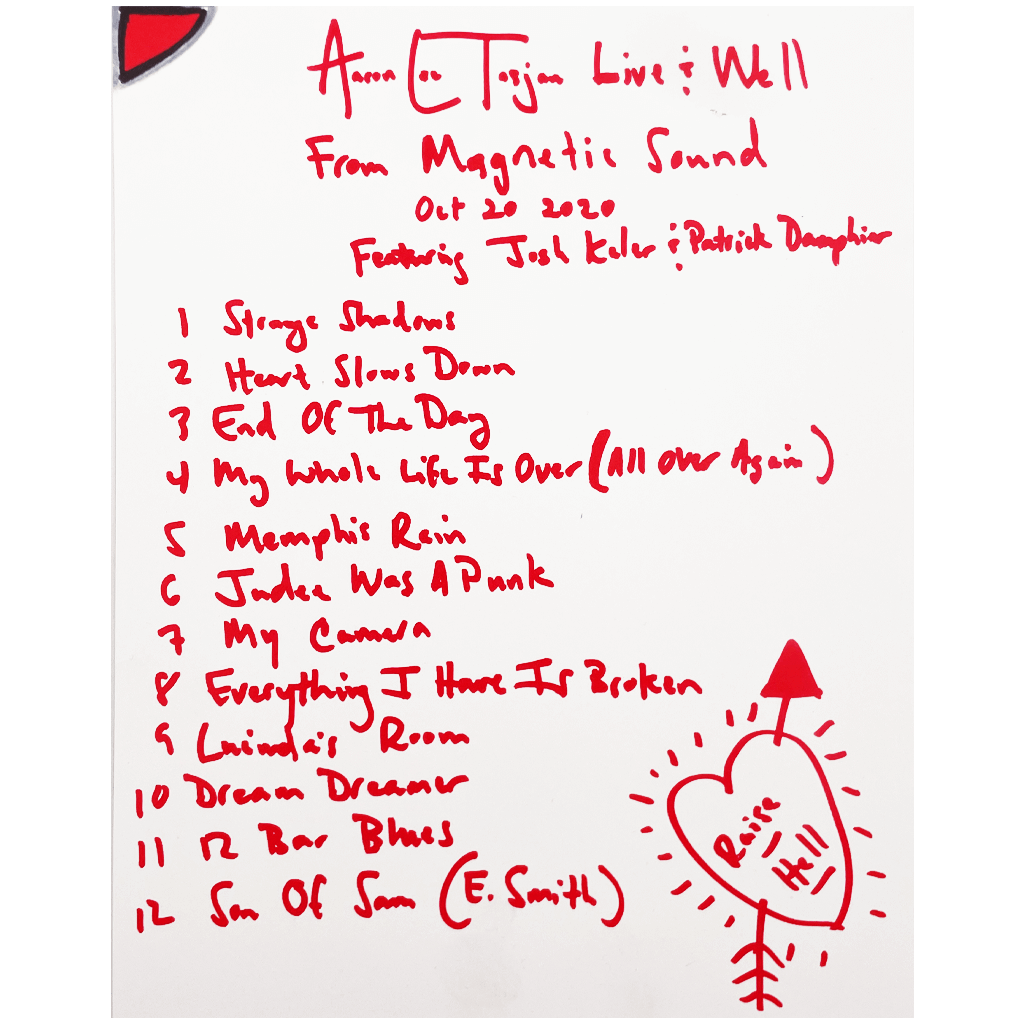 Aaron Lee Tasjan Live & Well
From Magnetic Sound
Oct 20 2020
Featuring Josh Kaler & Patrick Damphier
1 Strange Shadows
2 Heart Slows Down
3 End Of The Day
4 My Whole Life Is Over (All Over Again)
5 Memphis Rain
6 Judee Was A Punk
7 My Camera
8 Everything I Have Is Broken
9 Lucinda's Room
10 Dream Dreamer
11 12 Bar Blues
12 Son Of Sam (E. Smith)
Raise
Hell